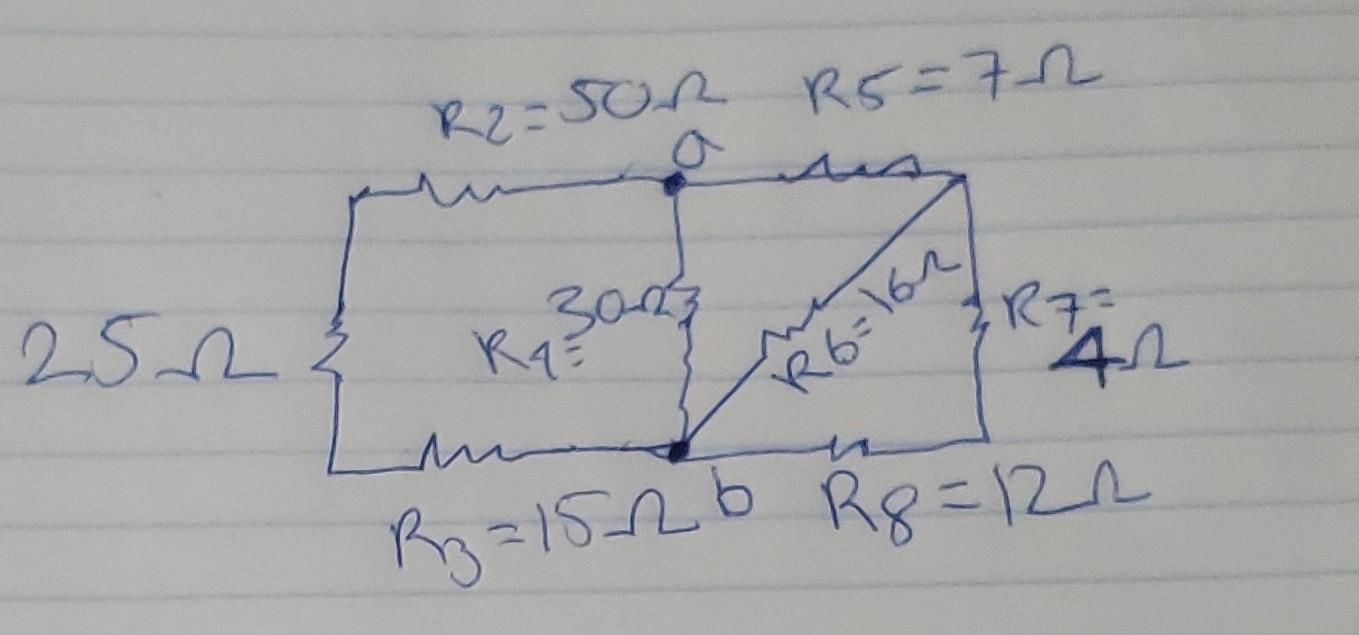 R2=50Ω R5=7Ω
a
25Ω
R4=30Ω
R6=16Ω
R7=
4Ω
R3=15Ω b R8=12Ω